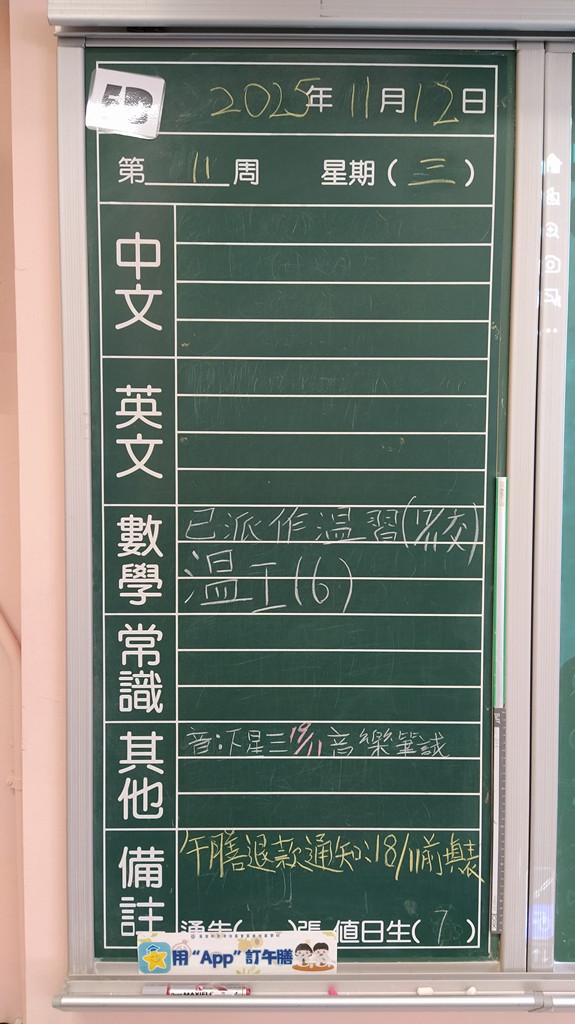 5B
2025年11月12日
第11周 星期(三)
中文
英文
數學
已派作溫習(17/11交)
溫工(6)
常識
其他
音:下星三19/11音樂筆試
備註
午膳退款通知:18/11前填表
通告( )張 值日生(7)
用“App”訂午膳